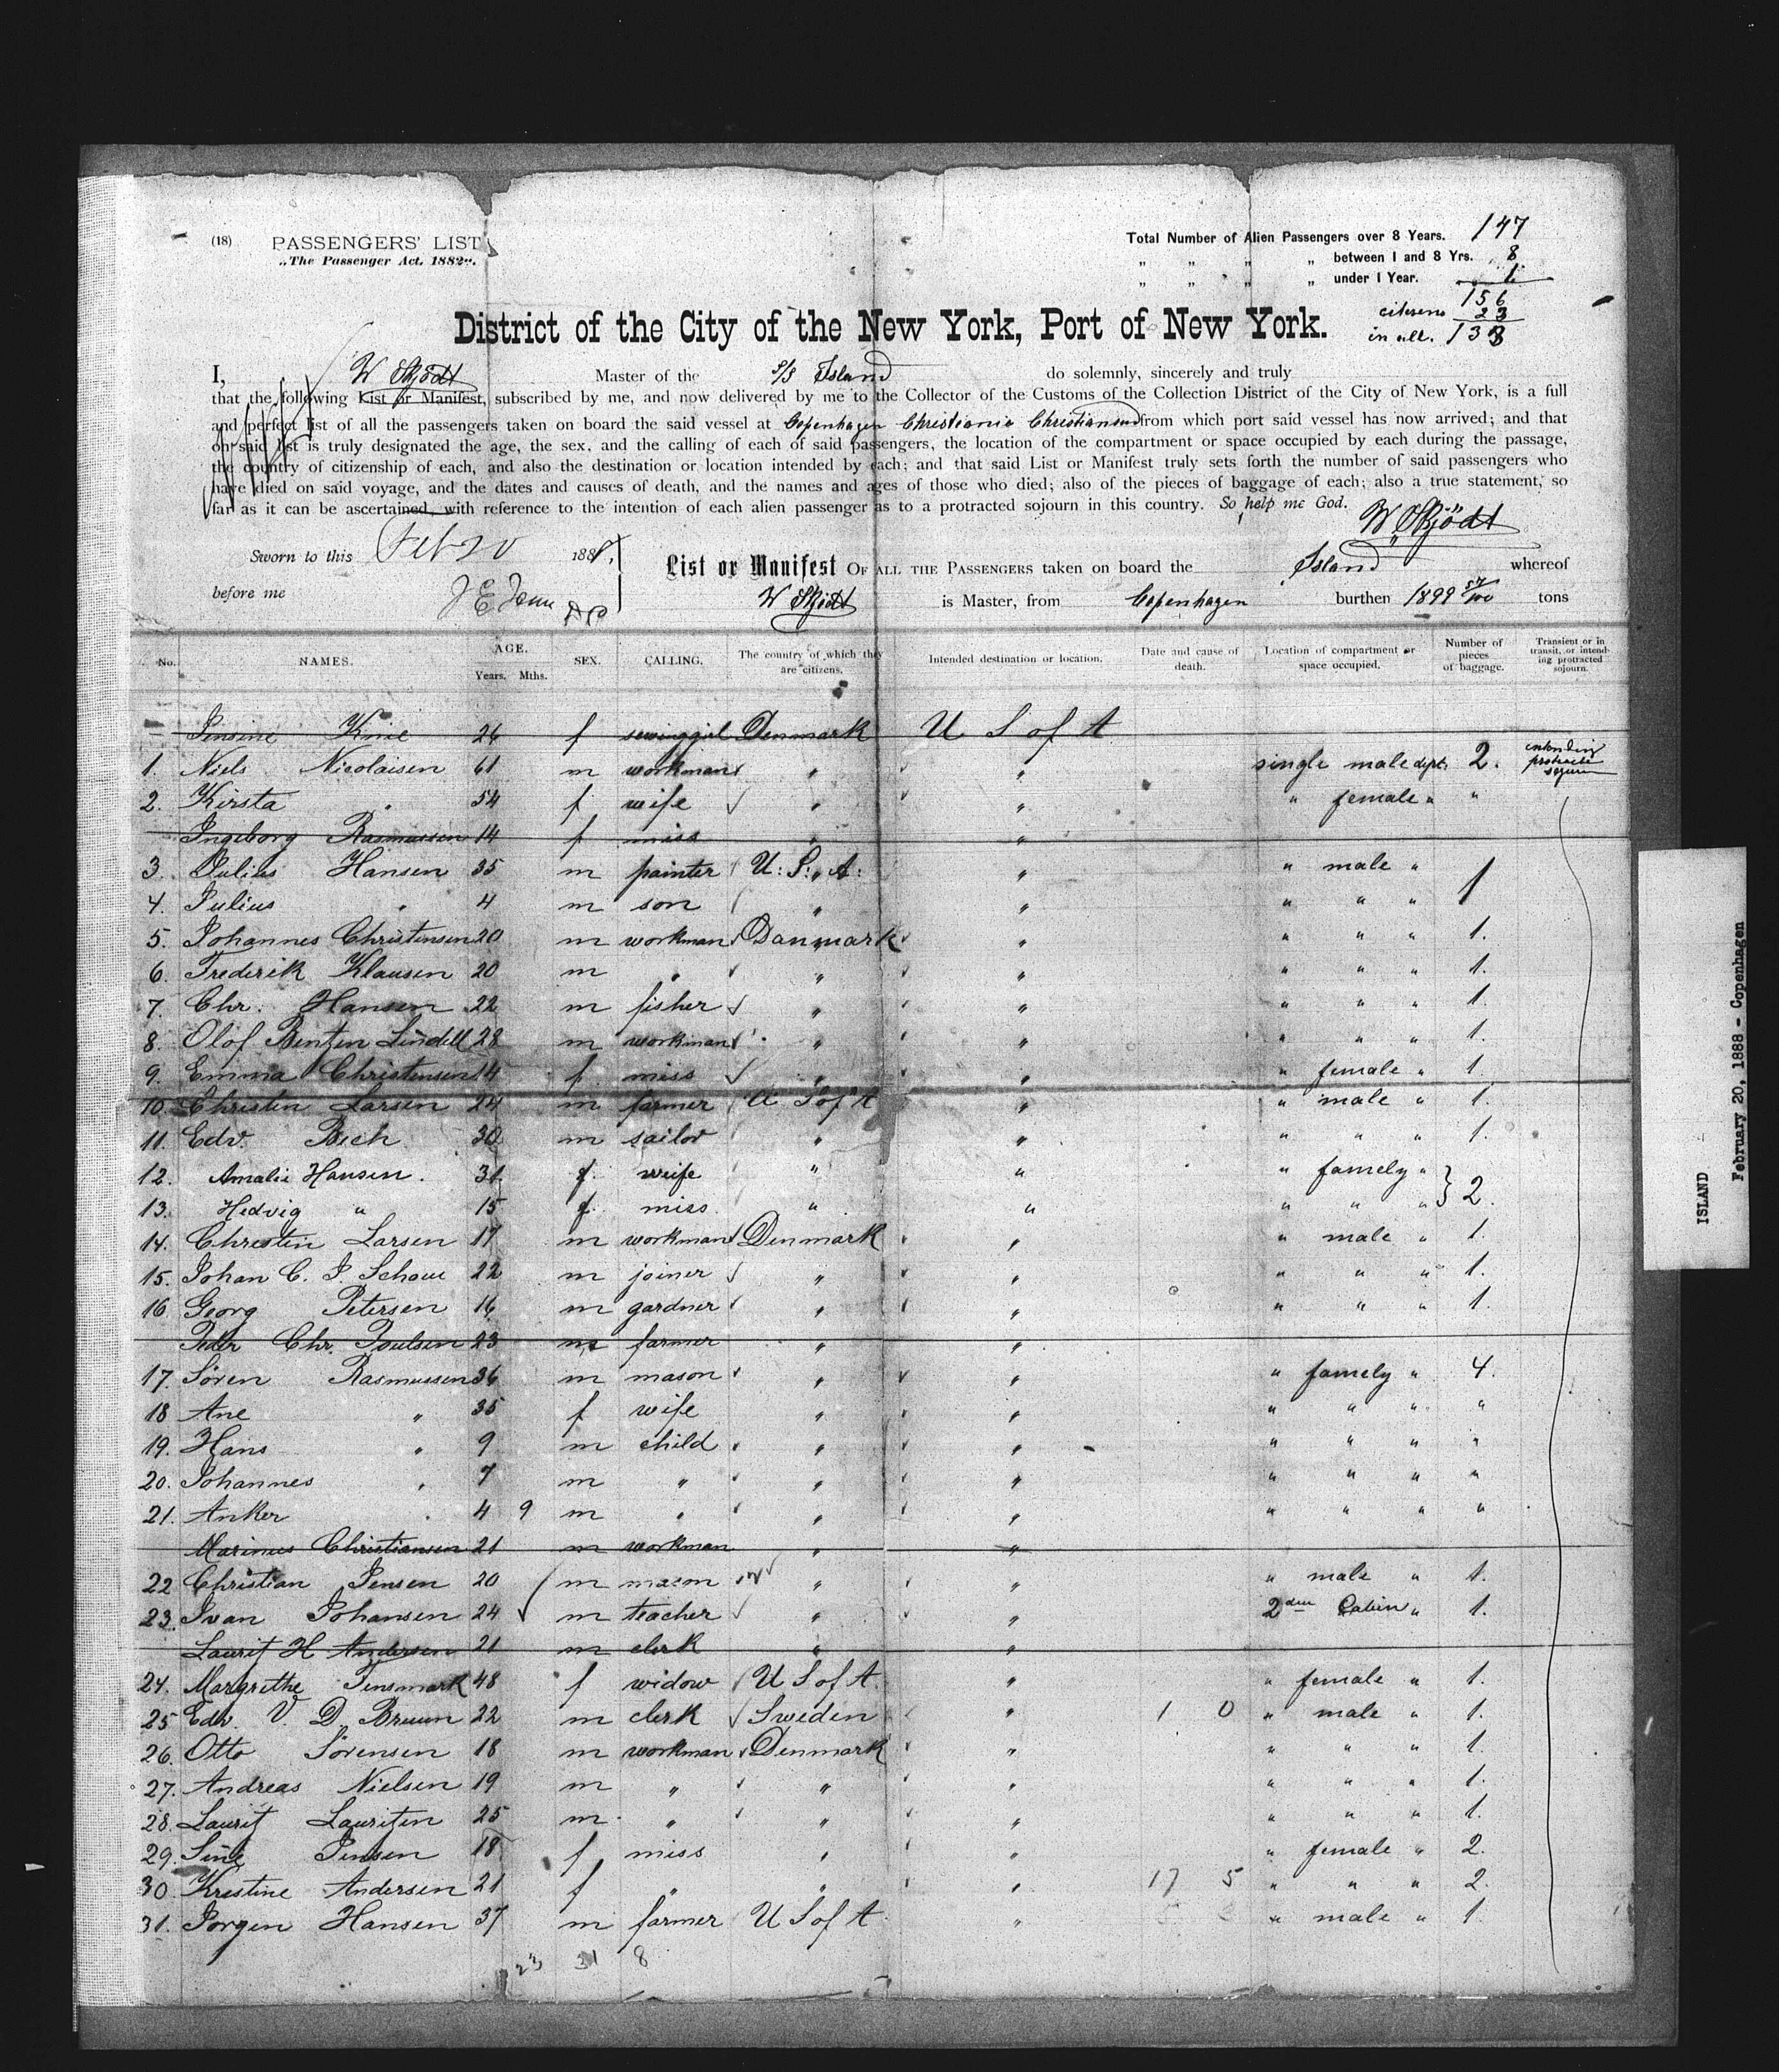 (18) PASSENGERS' LIST
„The Passenger Act. 1882".
Total Number of Alien Passengers over 8 Years. 147
„ „ „ „ between 1 and 8 Yrs. 8
„ „ „ „ under 1 Year. 1
156
citizens 23
in all. 133
District of the City of the New York, Port of New York.
I, W Skjödt Master of the S/S Island do solemnly, sincerely and truly
that the following List or Manifest, subscribed by me, and now delivered by me to the Collector of the Customs of the Collection District of the City of New York, is a full
and perfect list of all the passengers taken on board the said vessel at Copenhagen Christiania Christiansand from which port said vessel has now arrived; and that
on said list is truly designated the age, the sex, and the calling of each of said passengers, the location of the compartment or space occupied by each during the passage,
the country of citizenship of each, and also the destination or location intended by each; and that said List or Manifest truly sets forth the number of said passengers who
have died on said voyage, and the dates and causes of death, and the names and ages of those who died; also of the pieces of baggage of each; also a true statement, so
far as it can be ascertained, with reference to the intention of each alien passenger as to a protracted sojourn in this country. So help me God.
W Skjödt
Sworn to this Feb 20 1888.
before me
List or Manifest OF ALL THE PASSENGERS taken on board the Island whereof
W Skjödt is Master, from Copenhagen burthen 1899 57/100 tons
No. NAMES. AGE. Years. Mths. SEX. CALLING. The country of which they are citizens. Intended destination or location. Date and cause of death. Location of compartment or space occupied. Number of pieces of baggage. Transient or in transit, or intending protracted sojourn.
Jensine Knie 26 f sewinggirl Denmark U S of A
1. Niels Nicolaisen 61 m workman „ „ single male dept. 2. intending protracted sojourn
2. Kirsta „ 54 f wife „ „ „ female „ „
Ingeborg Rasmussen 14 f miss „ „
3. Julius Hansen 35 m painter U. S. A. „ „ male „ 1
4. Julius „ 4 m son „ „ „ „ „
5. Johannes Christensen 20 m workman Danmark „ „ „ „ 1.
6. Frederik Klausen 20 m „ „ „ „ „ „ 1.
7. Chr. Hansen 22 m fisher „ „ „ „ „ 1.
8. Olof Bentzen Lindell 28 m workman „ „ „ „ „ 1.
9. Emma Christensen 14 f miss „ „ „ female „ 1.
10. Christin Larsen 24 m farmer U S of A „ „ male „ 1.
11. Edv. Bech 30 m sailor „ „ „ „ „ 1.
12. Amalie Hansen. 31 f. wife „ „ „ famely „ } 2.
13. Hedvig „ 15 f. miss. „ „ „ „ „
14. Chrestin Larsen 17 m workman Denmark „ „ male „ 1.
15. Johan C. J. Schou 22 m joiner „ „ „ „ „ 1.
16. Georg Petersen 16 m gardner „ „ „ „ „ 1.
Peder Chr. Poulsen 23 m farmer „ „
17. Sören Rasmussen 36 m mason „ „ „ famely „ 4.
18 Ane „ 35 f wife „ „ „ „ „ „
19. Hans „ 9 m child „ „ „ „ „ „
20. Johannes „ 7 m „ „ „ „ „ „ „
21. Anker „ 4 9 m „ „ „ „ „ „ „
Marinus Christiansen 21 m workman „ „
22 Christian Jensen 20 m mason „ „ „ male „ 1.
23. Ivan Johansen 24 m teacher „ „ 2den Cabin „ 1.
Laurit H Andersen 21 m clerk „ „
24. Margrethe Finsmark 48 f widow U S of A. „ „ female „ 1.
25 Edv. V. D. Bruun 22 m clerk Sweden „ 1 0 „ male „ 1.
26. Otto Sörensen 18 m workman Denmark „ „ „ „ 1.
27. Andreas Nielsen 19 m „ „ „ „ „ „ 1.
28. Laurit Lauritzen 25 m „ „ „ „ „ „ 1.
29. Sine Jensen 18 f miss „ „ „ female „ 2.
30. Krestine Andersen 21 f „ „ „ 17 5 „ „ „ 2.
31. Jorgen Hansen 37 m farmer U S of A „ „ male „ 1.
23 31 8
ISLAND
February 20, 1888 - Copenhagen